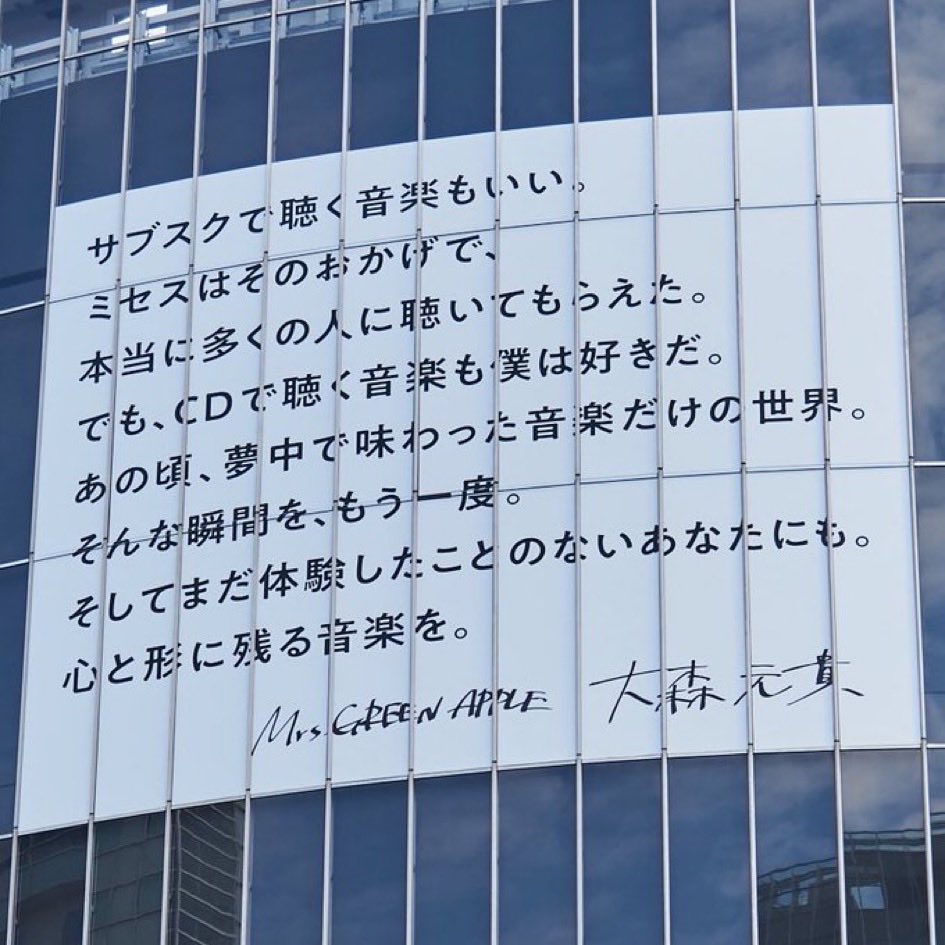 サブスクで聴く音楽もいい。
ミセスはそのおかげで、
本当に多くの人に聴いてもらえた。
でも、CDで聴く音楽も僕は好きだ。
あの頃、夢中で味わった音楽だけの世界。
そんな瞬間を、もう一度。
そしてまだ体験したことのないあなたにも。
心と形に残る音楽を。
Mrs. GREEN APPLE 大森元貴